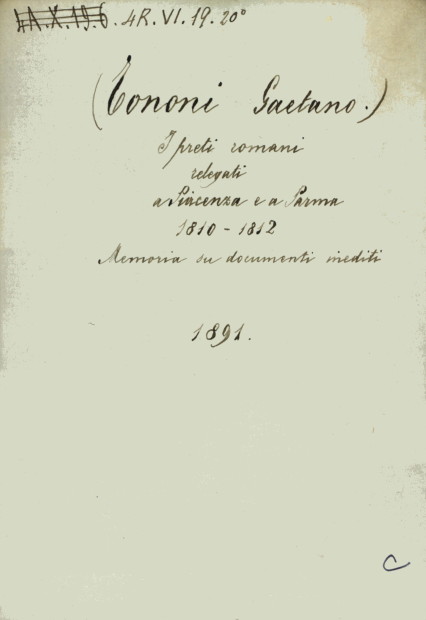 4R.VI.19.20°
(Tononi Gaetano.)
I preti romani
relegati
a Piacenza e a Parma
1810 - 1812
Memoria su documenti inediti
1891.
C